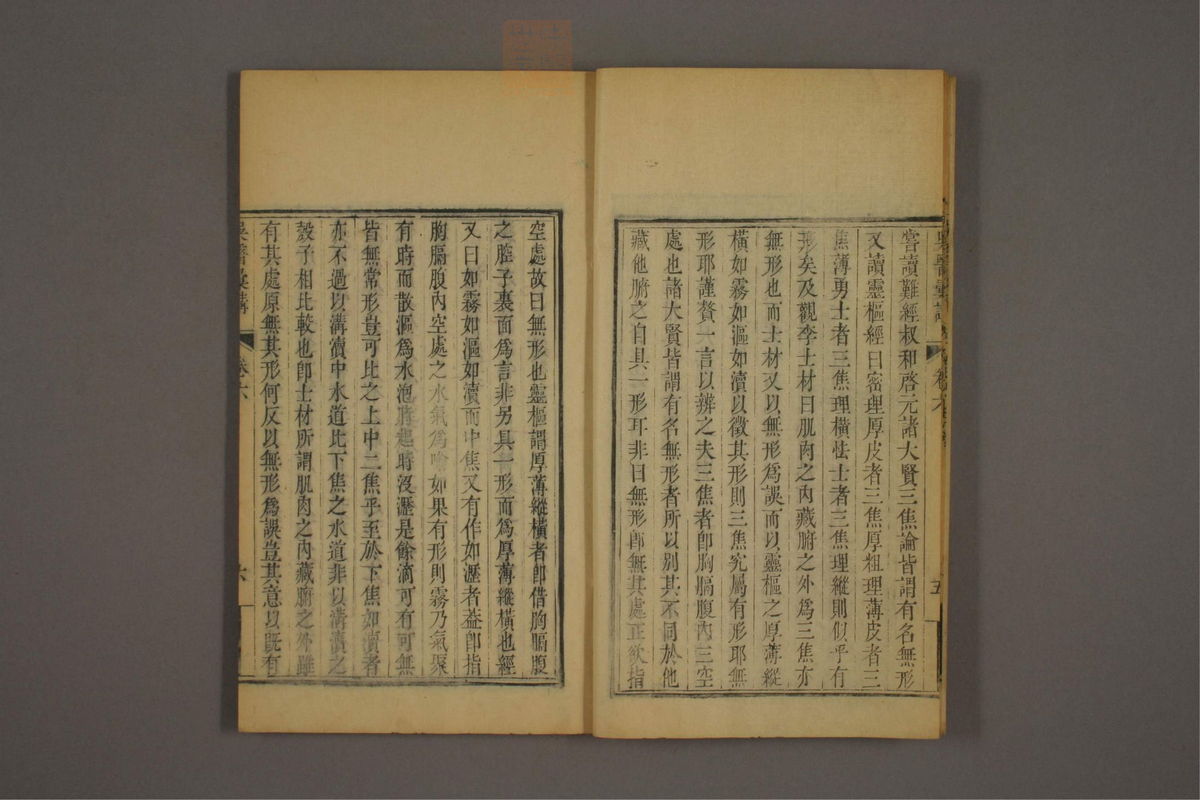 嘗讀難經叔和啓元諸大賢三焦論皆謂有名無形
又讀靈樞經曰密理厚皮者三焦厚粗理薄皮者三
焦薄勇士者三焦理橫怯士者三焦理縱則似乎有
形矣及觀李士材曰肌肉之內藏腑之外為三焦亦
無形也而士材又以無形為誤而以靈樞之厚薄縱
橫如霧如漚如瀆以徵其形則三焦究屬有形耶無
形耶謹贅一言以辨之夫三焦者卽胸膈腹內三空
處也諸大賢皆謂有名無形者所以別其不同於他
藏他腑之自具一形耳非曰無形卽無其處正欲指
五
空處故曰無形也靈樞謂厚薄縱橫者卽借胸膈腹
之腔子裏面為言非另具一形而為厚薄縱橫也經
又曰如霧如漚如瀆而中焦又有作如瀝者蓋卽指
胸膈腹內空處之水氣為喻如果有形則霧乃氣聚
有時而散漚為水泡時起時沒瀝是餘滴可有可無
皆無常形豈可比之上中二焦乎至於下焦如瀆者
亦不過以溝瀆中水道比下焦之水道非以溝瀆之
殼子相比較也卽士材所謂肌肉之內藏腑之外雖
有其處原無其形何反以無形為誤豈其意以既有
吳醫彙講
卷六
六